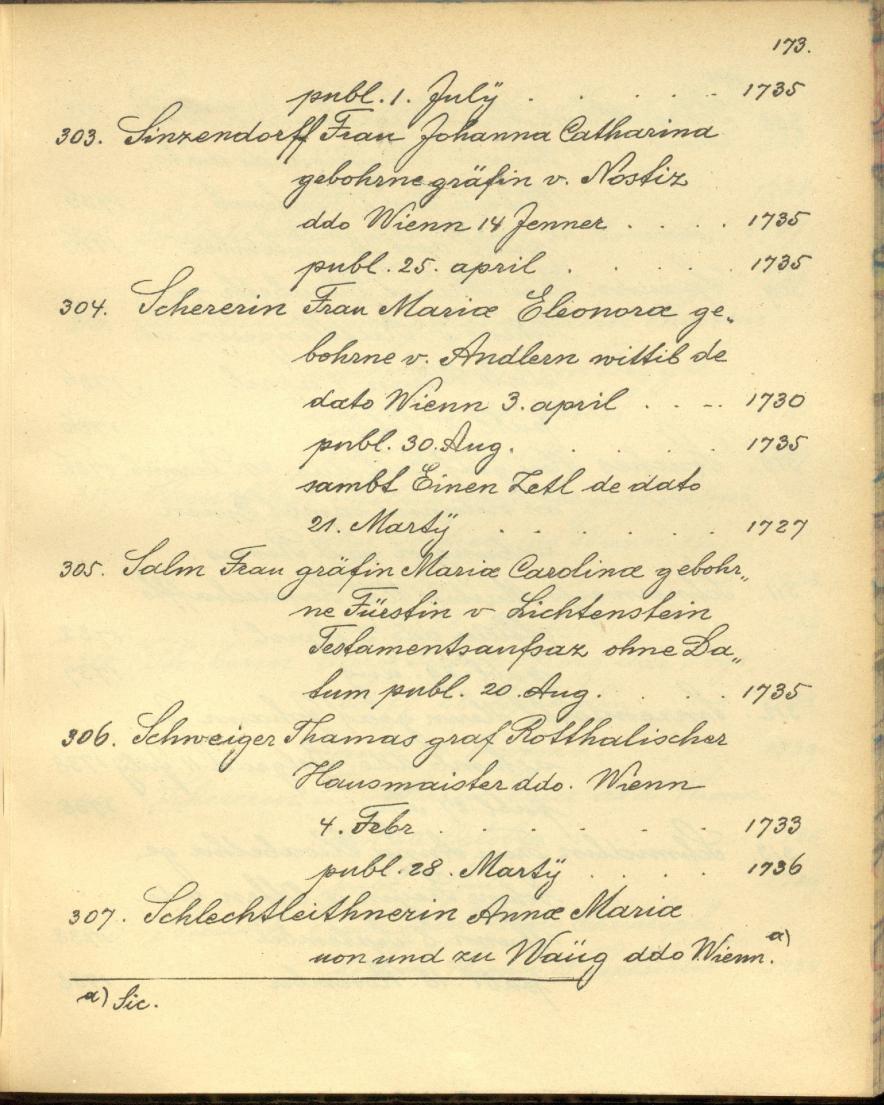 173.
publ. 1. Julÿ . . . . . 1735
303. Sinzendorff Frau Johanna Catharina
gebohrne gräfin v. Nostiz
ddo Wienn 14 Jenner . . . . 1735
publ. 25. april . . . . . 1735
304. Schererin Frau Mariæ Eleonoræ ge„
bohrne v. Andlern wittib de
dato Wienn 3. april . . . . 1730
publ. 30. Aug. . . . . . 1735
sambt Einen Zetl de dato
21. Martÿ . . . . . . 1727
305. Salm Frau gräfin Mariæ Carolinæ gebohr„
ne Fürstin v Lichtenstein
Testamentsaufsaz ohne Da„
tum publ. 20. Aug. . . . 1735
306. Schweiger Thamas graf Rotthalischer
Hausmaister ddo. Wienn
4. Febr . . . . . . 1733
publ. 28. Martÿ . . . . 1736
307. Schlechtleithnerin Annæ Mariæ
von und zu Waüg ddo Wienn. a)
a) Sic.